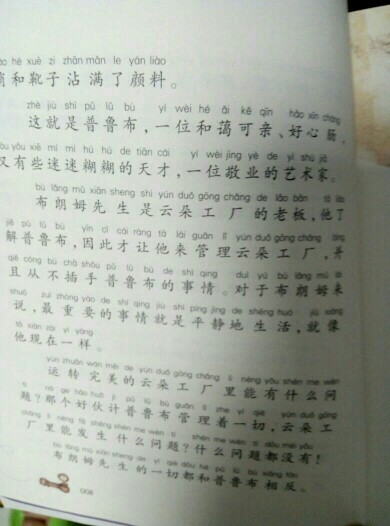 hé xuē zi zhān mǎn le yán liào
和靴子沾满了颜料。
zhè jiù shì pǔ lǔ bù yí wèi hé ǎi kě qīn hǎo xīn cháng
这就是普鲁布，一位和蔼可亲、好心肠、
yòu yǒu xiē mí mí hú hú de tiān cái yí wèi jìng yè de yì shù jiā
又有些迷迷糊糊的天才，一位敬业的艺术家。
bù lǎng mǔ xiān sheng shì yún duǒ gōng chǎng de lǎo bǎn tā liǎo
布朗姆先生是云朵工厂的老板，他了
jiě pǔ lǔ bù yīn cǐ cái ràng tā lái guǎn lǐ yún duǒ gōng chǎng bìng
解普鲁布，因此才让他来管理云朵工厂，并
qiě cóng bù chā shǒu pǔ lǔ bù de shì qing duì yú bù lǎng mǔ lái
且从不插手普鲁布的事情。对于布朗姆来
shuō zuì zhòng yào de shì qing jiù shì píng jìng de shēng huó jiù xiàng
说，最重要的事情就是平静地生活，就像
tā xiàn zài yí yàng
他现在一样。
yùn zhuǎn wán měi de yún duǒ gōng chǎng lǐ néng yǒu shén me wèn
运转完美的云朵工厂里能有什么问
tí nà ge hǎo huǒ jì pǔ lǔ bù guǎn lǐ zhe yí qiè yún duǒ gōng
题？那个好伙计普鲁布管理着一切，云朵工
chǎng lǐ néng fā shēng shén me wèn tí shén me wèn tí dōu méi yǒu
厂里能发生什么问题？什么问题都没有！
bù lǎng mǔ xiān sheng de yí qiè dōu hé pǔ lǔ bù xiāng fǎn
布朗姆先生的一切都和普鲁布相反。
008